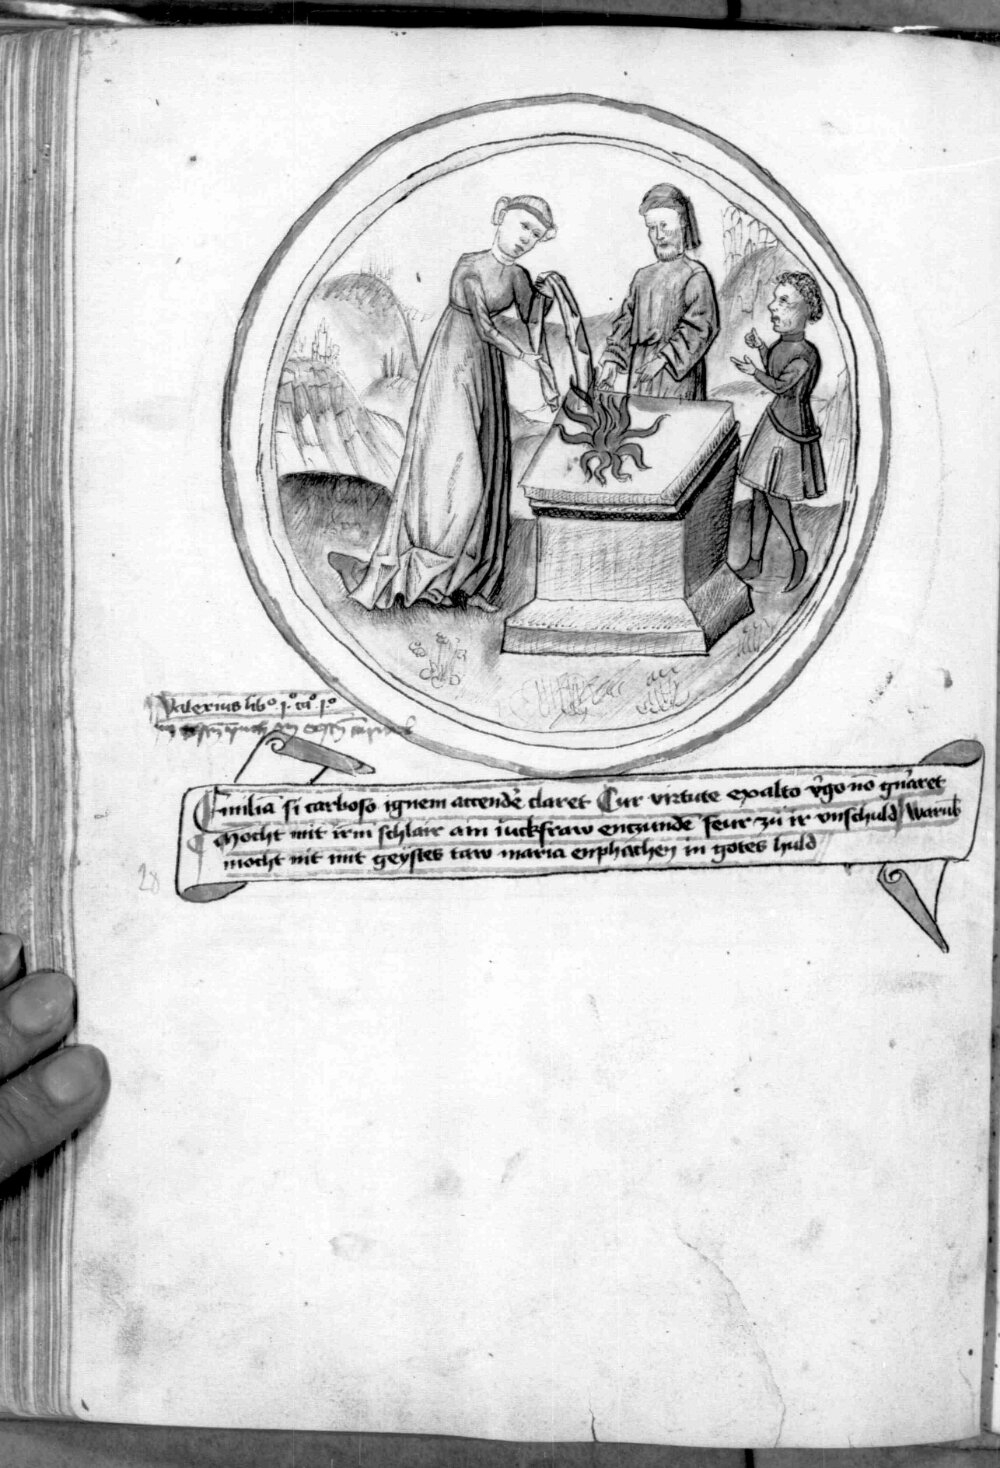 Valerius lib° .j.° ca° j°
Emilia si carboso ignem accendē claret Cur virtute exalto v̄go nō gn̄aret
Mocht mit irm schlair ain iuckfraw entzunde feur zu ir vnschuld Warūb
mocht nit mit geystes taw maria enphachen in gotes huld
28